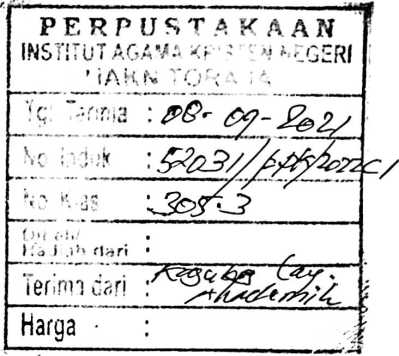 PERPUSTAKAAN
INSTITUT AGAMA KRISTEN NEGERI
IAKN TORAJA
Tgl. Terima : 08-09-2021
No. Induk : 52031/
No. Klas : 305.3
Dibeli/
Hadiah dari :
Terima dari : Kasubag Lay. Akademik
Harga :